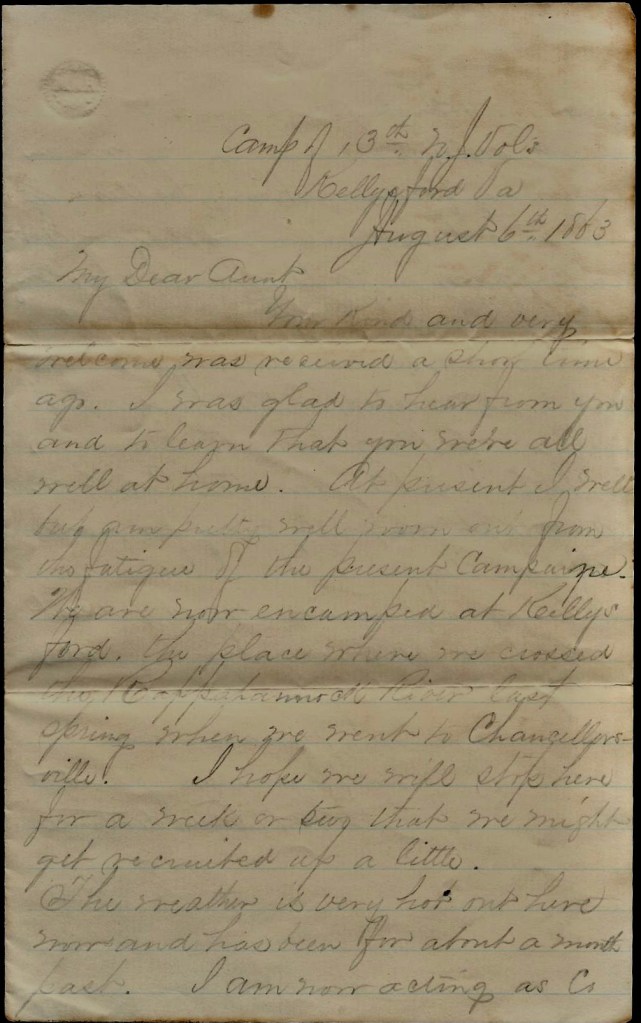 Camp of 13th N.J. Vols
Kellys ford Va
August 6th 1863
My Dear Aunt
Your kind and very
welcome was received a short time
ago. I was glad to hear from you
and to learn that you were all
well at home. At present I well
but am pretty well worn out from
the fatigue of the present Campaigne.
We are now encamped at Kellys
ford. the place where we crossed
the Rappahannock River last
spring when we went to Chancellors-
ville. I hope we will stop here
for a week or two that we might
get recruited up a little.
The weather is very hot out here
now and has been for about a month
past. I am now acting as Co